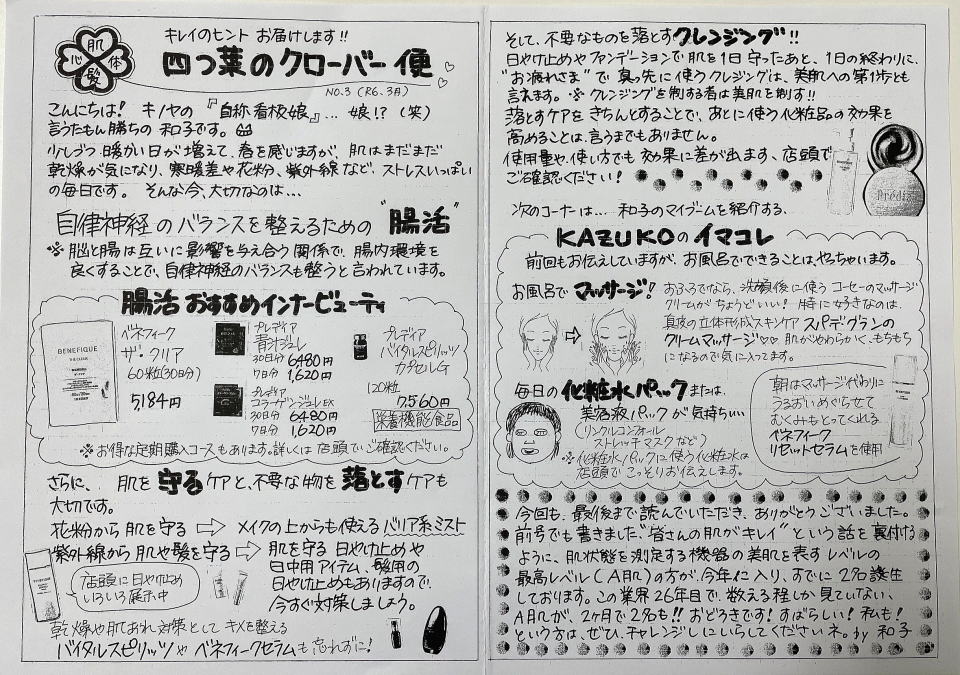 肌
心 体
髪
キレイのヒント お届けします!!
四つ葉のクローバー便
NO.3 (R6.3月)
こんにちは! キノヤの『自称看板娘』… 娘!? (笑)
言うたもん勝ちの 和子です。
少しづつ 暖かい日が増えて、春を感じますが、肌はまだまだ
乾燥が気になり、寒暖差や花粉、紫外線など、ストレスいっぱい
の毎日です。 そんな今、大切なのは…
自律神経のバランスを整えるための “腸活”
※ 脳と腸は互いに影響を与え合う関係で、腸内環境を
良くすることで、自律神経のバランスも整うと言われています。
腸活 おすすめインナービューティ
BENEFIQUE
THE CLEAR
ベネフィーク
ザ・クリア
60粒(30日分)
5,184円
プレディア
青汁ジュレ
30日分 6,480円
7日分 1,620円
プレディア
コラーゲンジュレEX
30日分 6,480円
7日分 1,620円
プレディア
バイタルスピリッツ
カプセルG
120粒
7,560円
栄養機能食品
※お得な定期購入コースもあります。詳しくは 店頭でご確認ください。
さらに、 肌を守るケアと、不要な物を落とすケアも
大切です。
花粉から 肌を守る ⇨ メイクの上からも使える バリア系ミスト
紫外線から 肌や髪を守る ⇨ 肌を守る 日やけ止めや
日中用アイテム、髪用の
日やけ止めもありますので、
今すぐ対策しましょう。
店頭に日やけ止め
いろいろ展示中
乾燥や肌あれ対策として キメを整える
バイタルスピリッツや ベネフィークセラムも忘れずに!
そして、不要なものを落とすクレンジング!!
日やけ止めや ファンデーションで 肌を1日守ったあと、1日の終わりに、
“お疲れさま”で 真っ先に使うクレジングは、美肌への第1歩とも
言えます。※クレンジングを制する者は美肌を制す!!
落とすケアを きちんとすることで、あとに使う化粧品の効果を
高めることは、言うまでもありません。
使用量や、使い方でも 効果に差が出ます、店頭で
ご確認ください!
Prédia
次のコーナーは… 和子のマイブームを紹介する、
KAZUKOの イマコレ
前回もお伝えしていますが、お風呂でできることは、やっちゃいます。
お風呂で マッサージ! おふろでなら、洗顔後に使う コーセーのマッサージ
クリームが ちょうどいい! 特に好きなのは、
真皮の立体形成スキンケア スパデグランの
クリームマッサージ♡♡ 肌がやわらかく、もちもち
になるので気に入ってます。
毎日の 化粧水パック または、
美容液パックが気持ちいい
(リンクルコンシャル
ストレッチマスクなど)
※化粧水パックに使う化粧水は
店頭で こっそりお伝えします。
朝はマッサージ代わりに
うるおいめぐらせて
むくみもとってくれる
ベネフィーク
リセットセラムを使用
今回も、最後まで読んでいただき、ありがとうございました。
前号でも書きました“皆さんの肌がキレイ”という話を裏付ける
ように、肌状態を測定する機器の美肌を表すレベルの
最高レベル(A肌)の方が、今年に入り、すでに 2名誕生
しております。この業界26年目で、数える程しか見ていない、
A肌が、2ヶ月で2名も!! おどろきです! すばらしい! 私も!
という方は、ぜひ、チャレンジしにいらしてくださいネ。by 和子